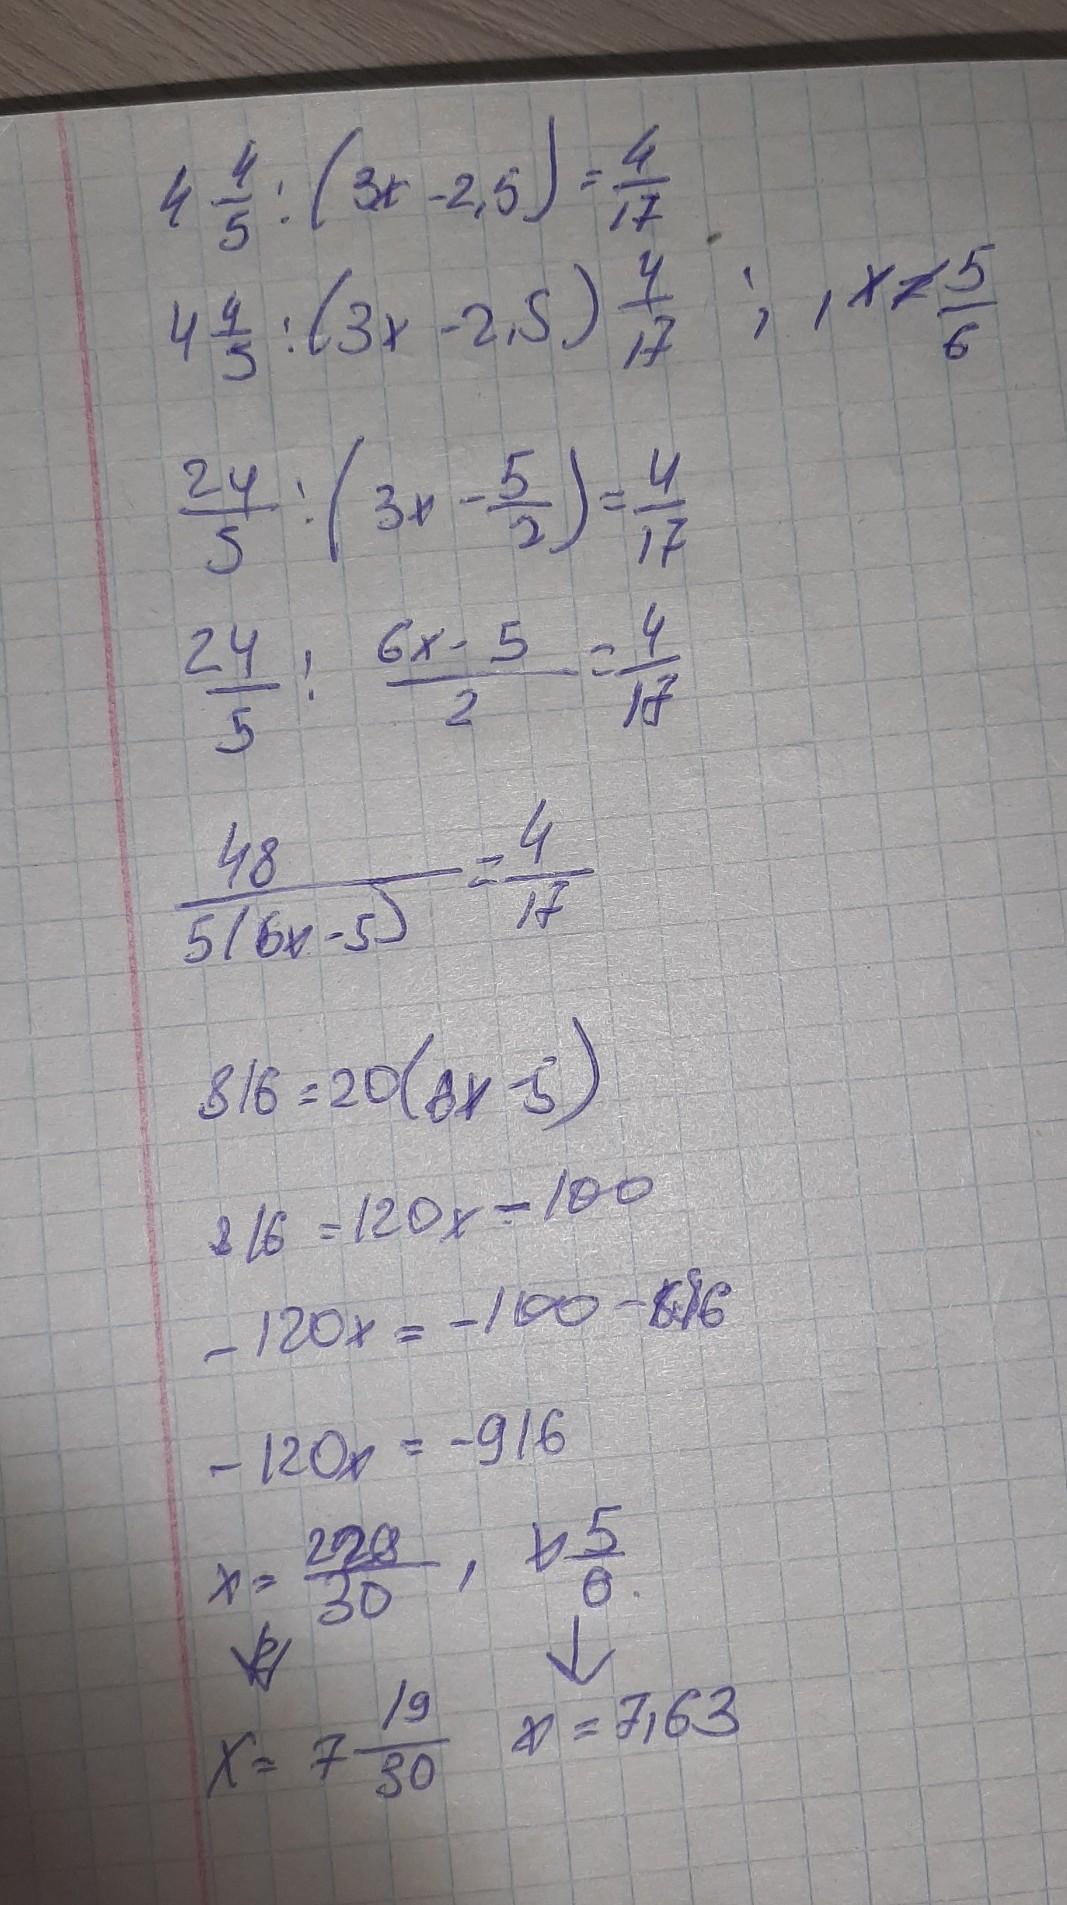 4 4/5 : (3x - 2,5) = 4/17
4 4/5 : (3x - 2,5) 4/17 ; , x ≠ 5/6
24/5 : (3x - 5/2) = 4/17
24/5 : (6x - 5)/2 = 4/17
48/(5(6x - 5)) = 4/17
816 = 20(6x - 5)
816 = 120x - 100
-120x = -100 - 816
-120x = -916
x = 229/30 , x 5/6
x = 7 19/30 x = 7,63